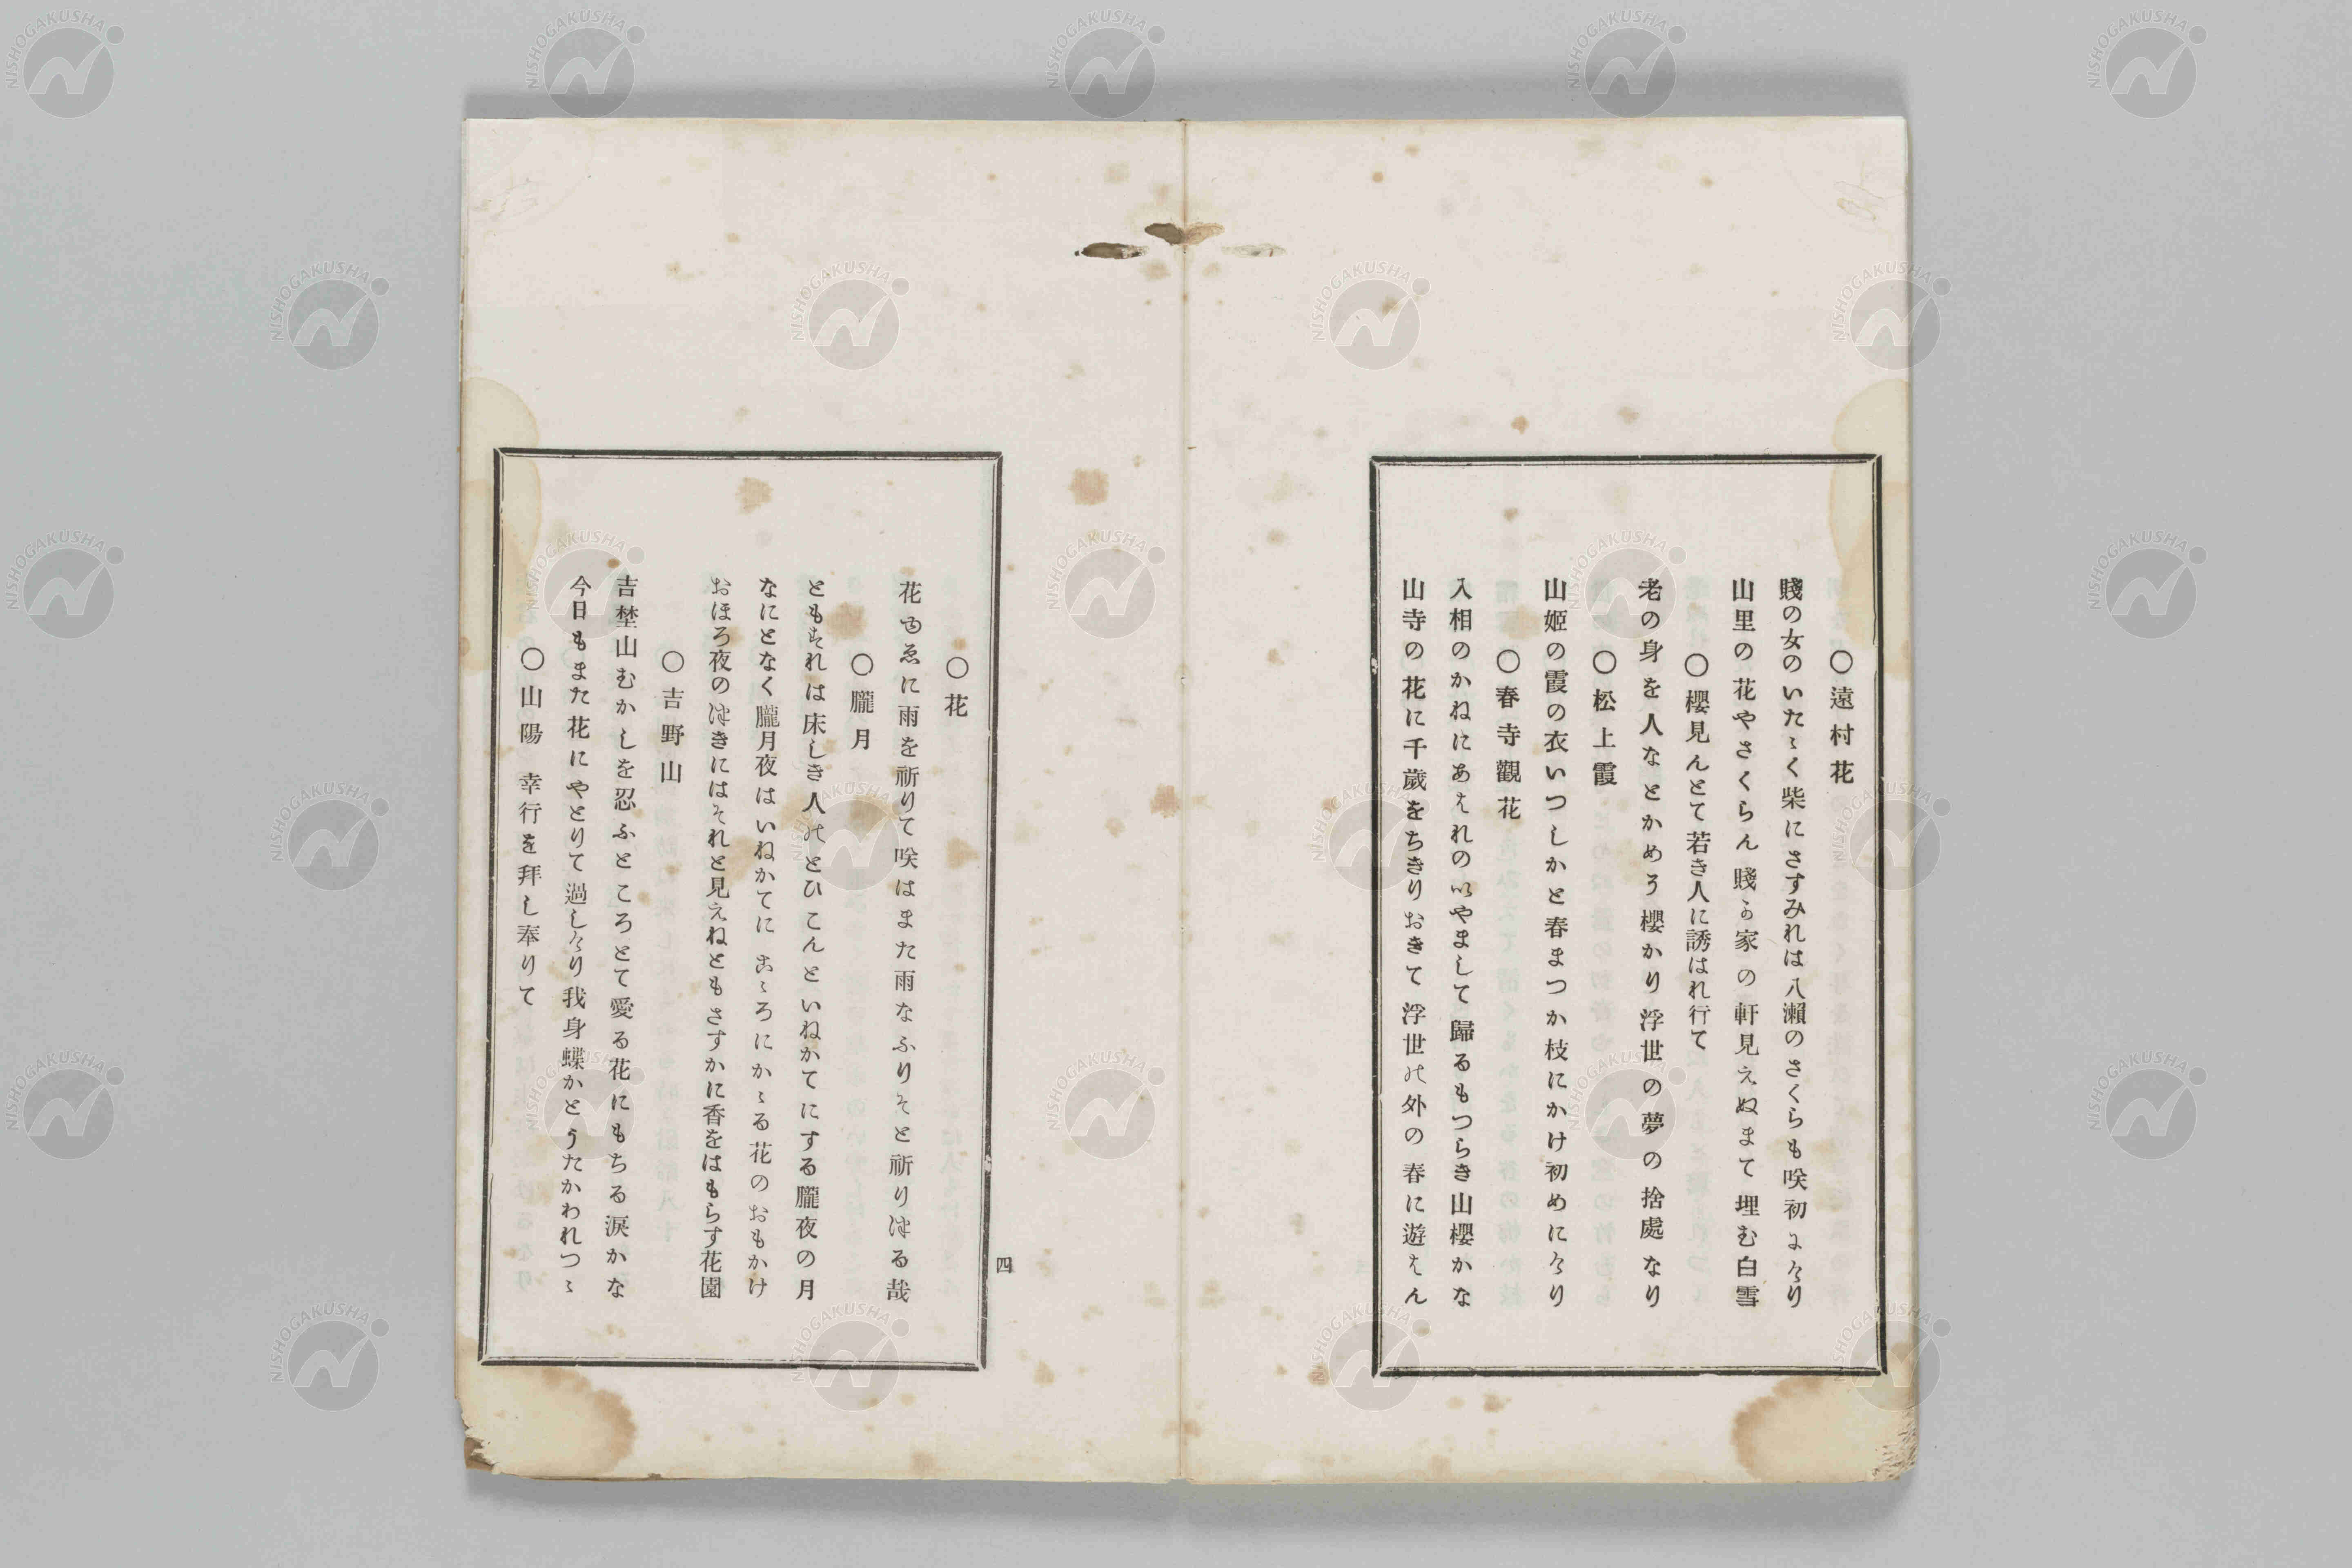 〇遠村花
賤の女のいたゝく柴にさすみれは八瀬のさくらも咲初にけり
山里の花やさくらん賤か家の軒見えぬまて埋む白雪
〇櫻見んとて若き人に誘はれ行て
老の身を人なとかめう櫻かり浮世の夢の捨處なり
〇松上霞
山姬の霞の衣いつしかと春まつか枝にかけ初めにけり
〇春寺觀花
入相のかねにあはれのいやまして歸るもつらき山櫻かな
山寺の花に千歲をちきりおきて浮世の外の春に遊はん
四
〇花
花ゆゑに雨を祈りて咲はまた雨なふりそと祈りける哉
〇朧月
ともすれは床しき人のとひこんといねかてにする朧夜の月
なにとなく朧月夜はいねかてにこゝろにかゝる花のおもかけ
おほろ夜のけきにはそれと見えねともさすかに香をはもらす花園
〇吉野山
吉埜山むかしを忍ふところとて愛る花にもちる涙かな
今日もまた花にやとりて過しけり我身蝶かとうたかわれつゝ
〇山陽 幸行を拜し奉りて
NISHOGAKUSHA